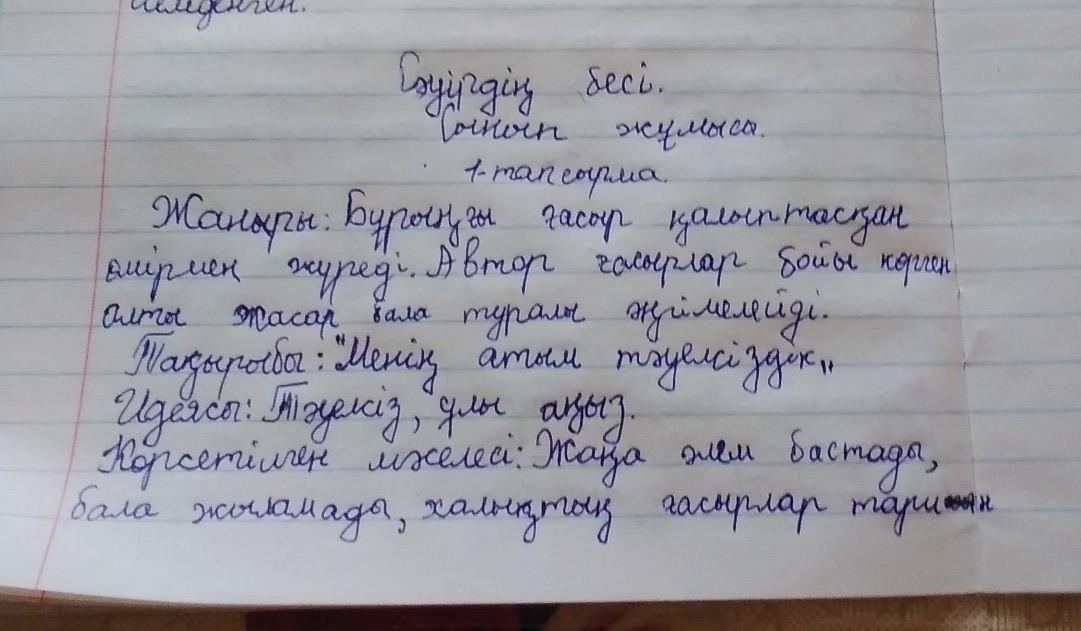 Сәуірдің бесі.
Сынып жұмысы.
1-тапсырма.
Жаныры: Бұрыңғы ғасыр қалыптасқан
өмірмен жүреді. Автор ғасырлар бойы көрген
алты жасар бала туралы әңгімелейді.
Тақырыбы: "Менің атым тәуелсіздік„
Идеясы: Тәуелсіз, ұлы аңыз.
Көрсетілген мәселесі: Жаңа әлем бастады,
бала жыламады, халықтың ғасырлар тарихын